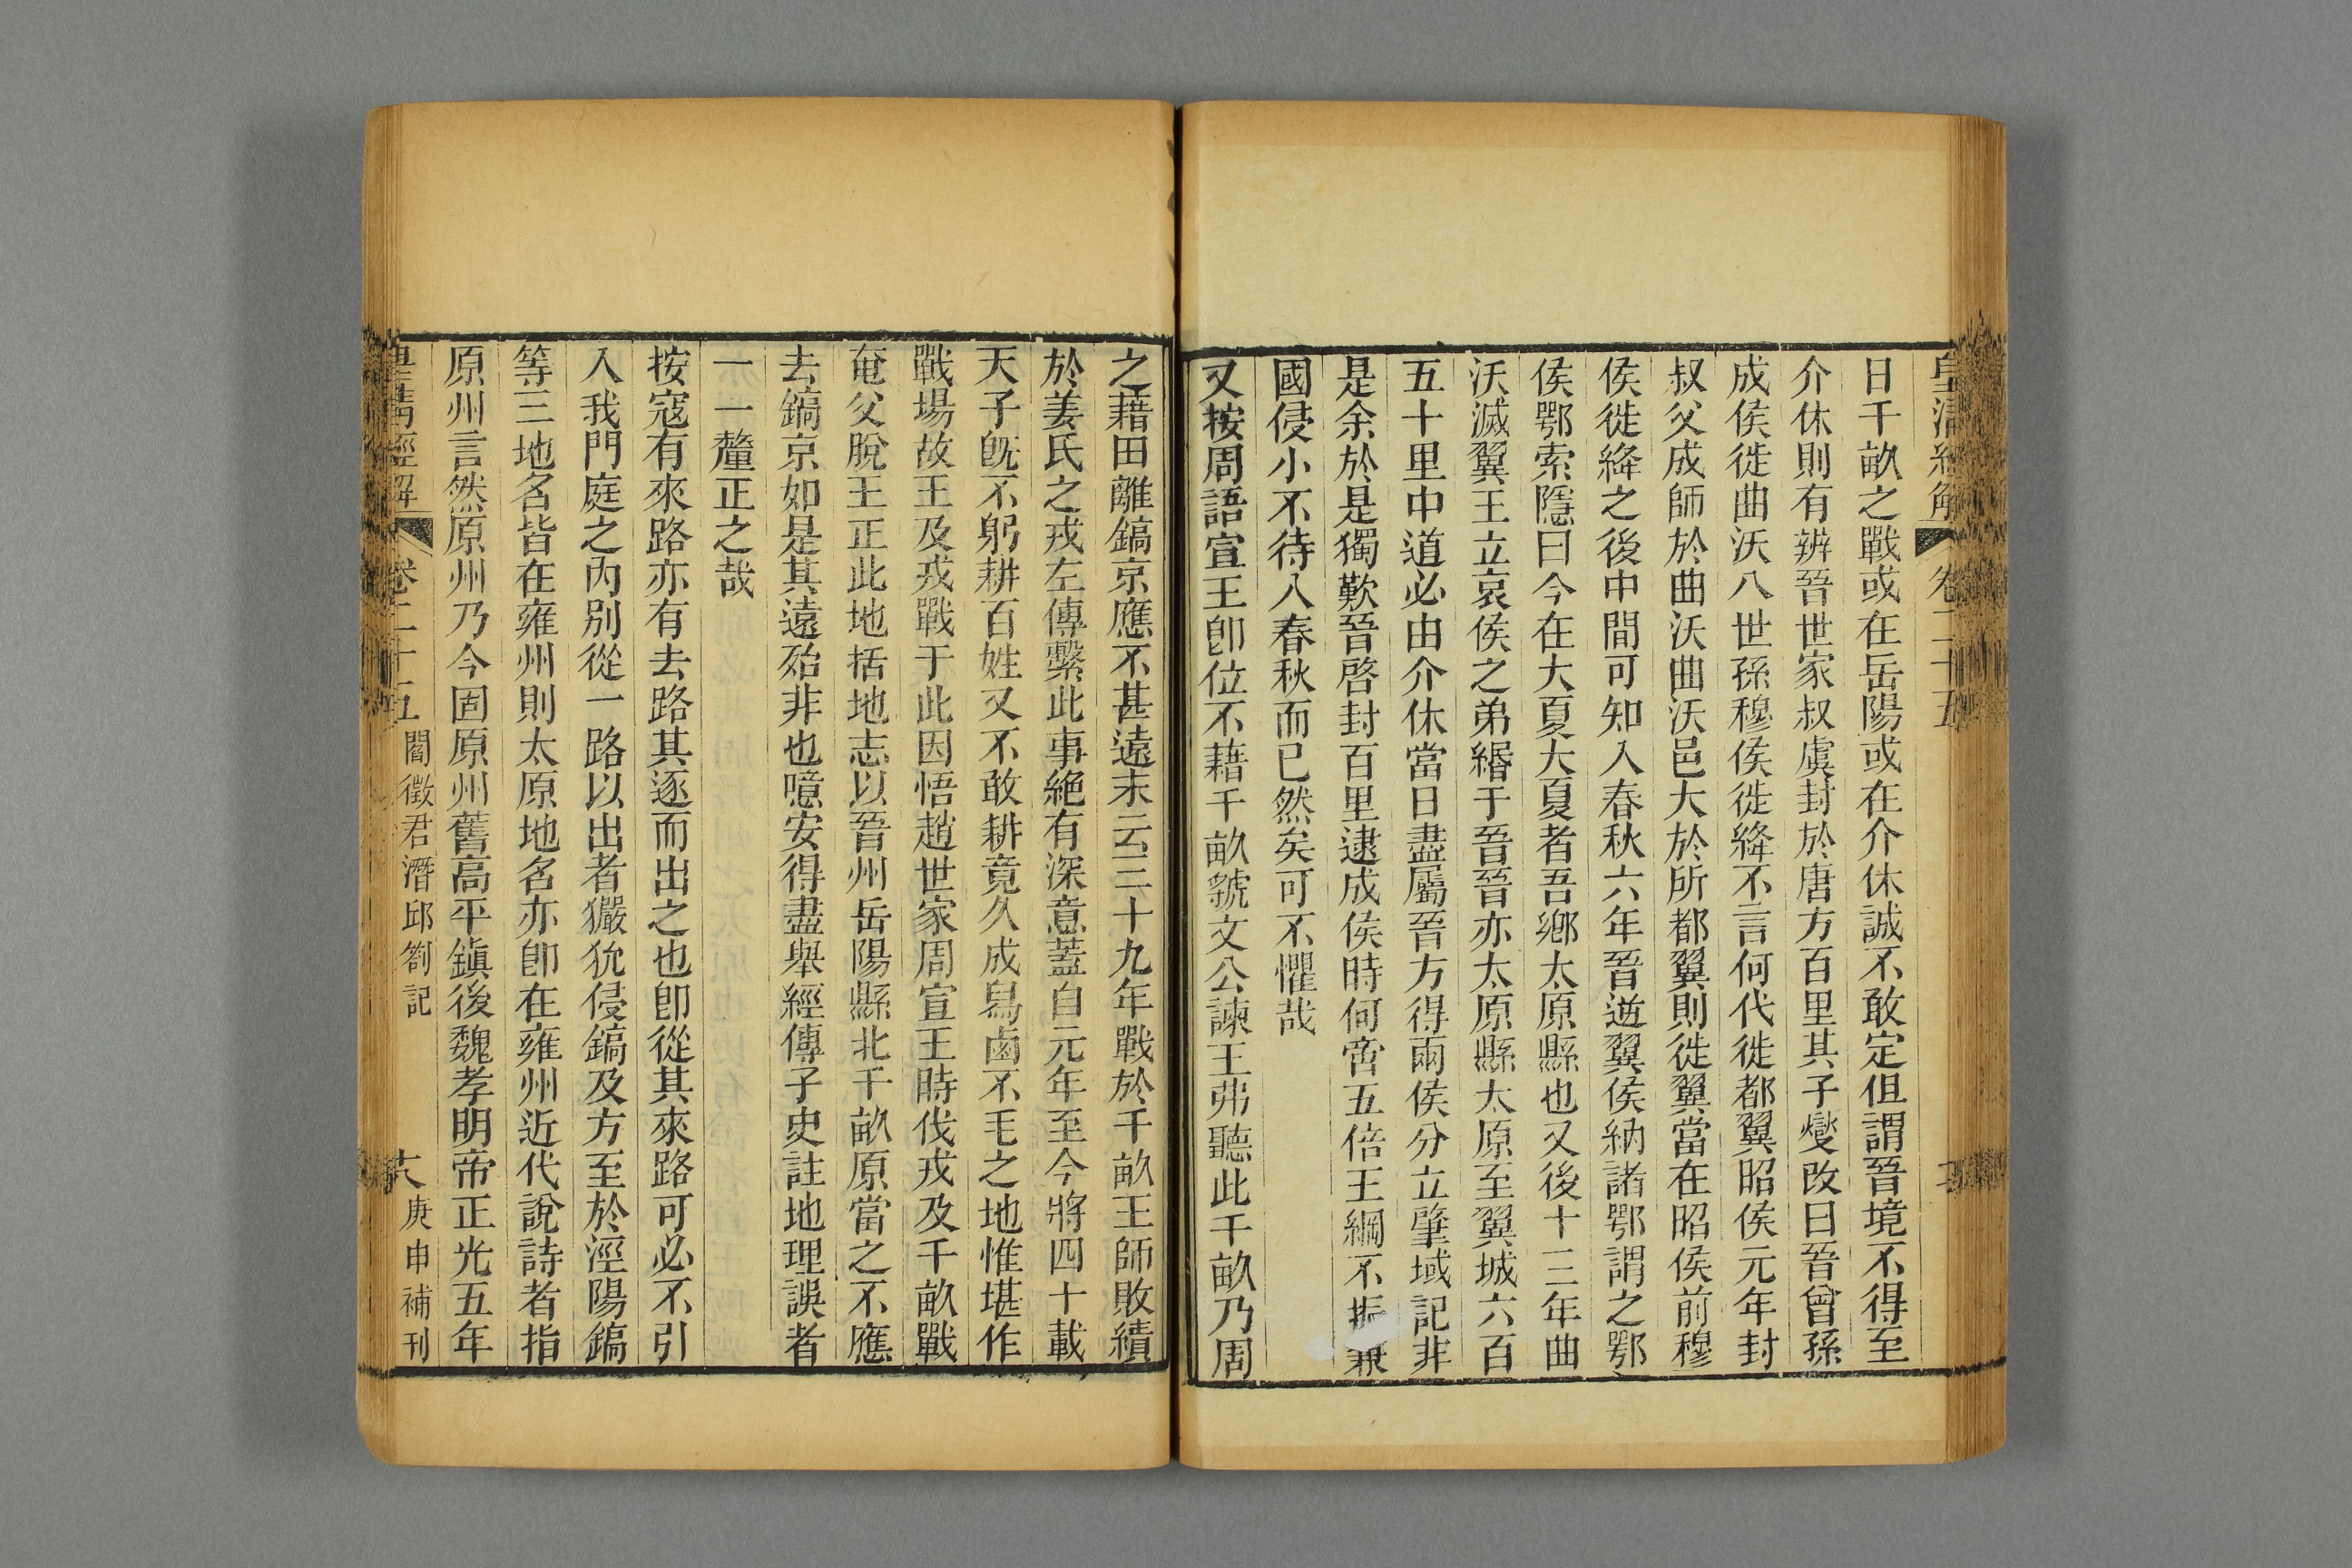 皇清經解 卷二十五
日千畝之戰或在岳陽或在介休誠不敢定但謂晉境不得至
介休則有辨晉世家叔虞封於唐方百里其子燮改曰晉曾孫
成侯徙曲沃八世孫穆侯徙絳不言何代徙都翼昭侯元年封
叔父成師於曲沃曲沃邑大於所都翼則徙翼當在昭侯前穆
侯徙絳之後中間可知入春秋六年晉逆翼侯納諸鄂謂之鄂
侯鄂索隱曰今在大夏大夏者吾鄉太原縣也又後十三年曲
沃滅翼王立哀侯之弟緡于晉晉亦太原縣太原至翼城六百
五十里中道必由介休當日盡屬晉方得兩侯分立肇域記非
是余於是獨歎晉啓封百里逮成侯時何啻五倍王綱不振兼
國侵小不待入春秋而已然矣可不懼哉
又按周語宣王卽位不藉千畝虢文公諫王弗聽此千畝乃周
之藉田離鎬京應不甚遠末云三十九年戰於千畝王師敗績
於姜氏之戎左傳繫此事絕有深意蓋自元年至今將四十載
天子旣不躬耕百姓又不敢耕竟久成舄鹵不毛之地惟堪作
戰場故王及戎戰于此因悟趙世家周宣王時伐戎及千畝戰
奄父脫王正此地括地志以晉州岳陽縣北千畝原當之不應
去鎬京如是其遠殆非也噫安得盡舉經傳子史註地理誤者
一一釐正之哉
按寇有來路亦有去路其逐而出之也卽從其來路可必不引
入我門庭之內別從一路以出者玁狁侵鎬及方至於涇陽鎬
等三地名皆在雍州則太原地名亦卽在雍州近代說詩者指
原州言然原州乃今固原州舊高平鎮後魏孝明帝正光五年
皇清經解 卷二十五 閻徵君潛邱劄記 六 庚申補刊